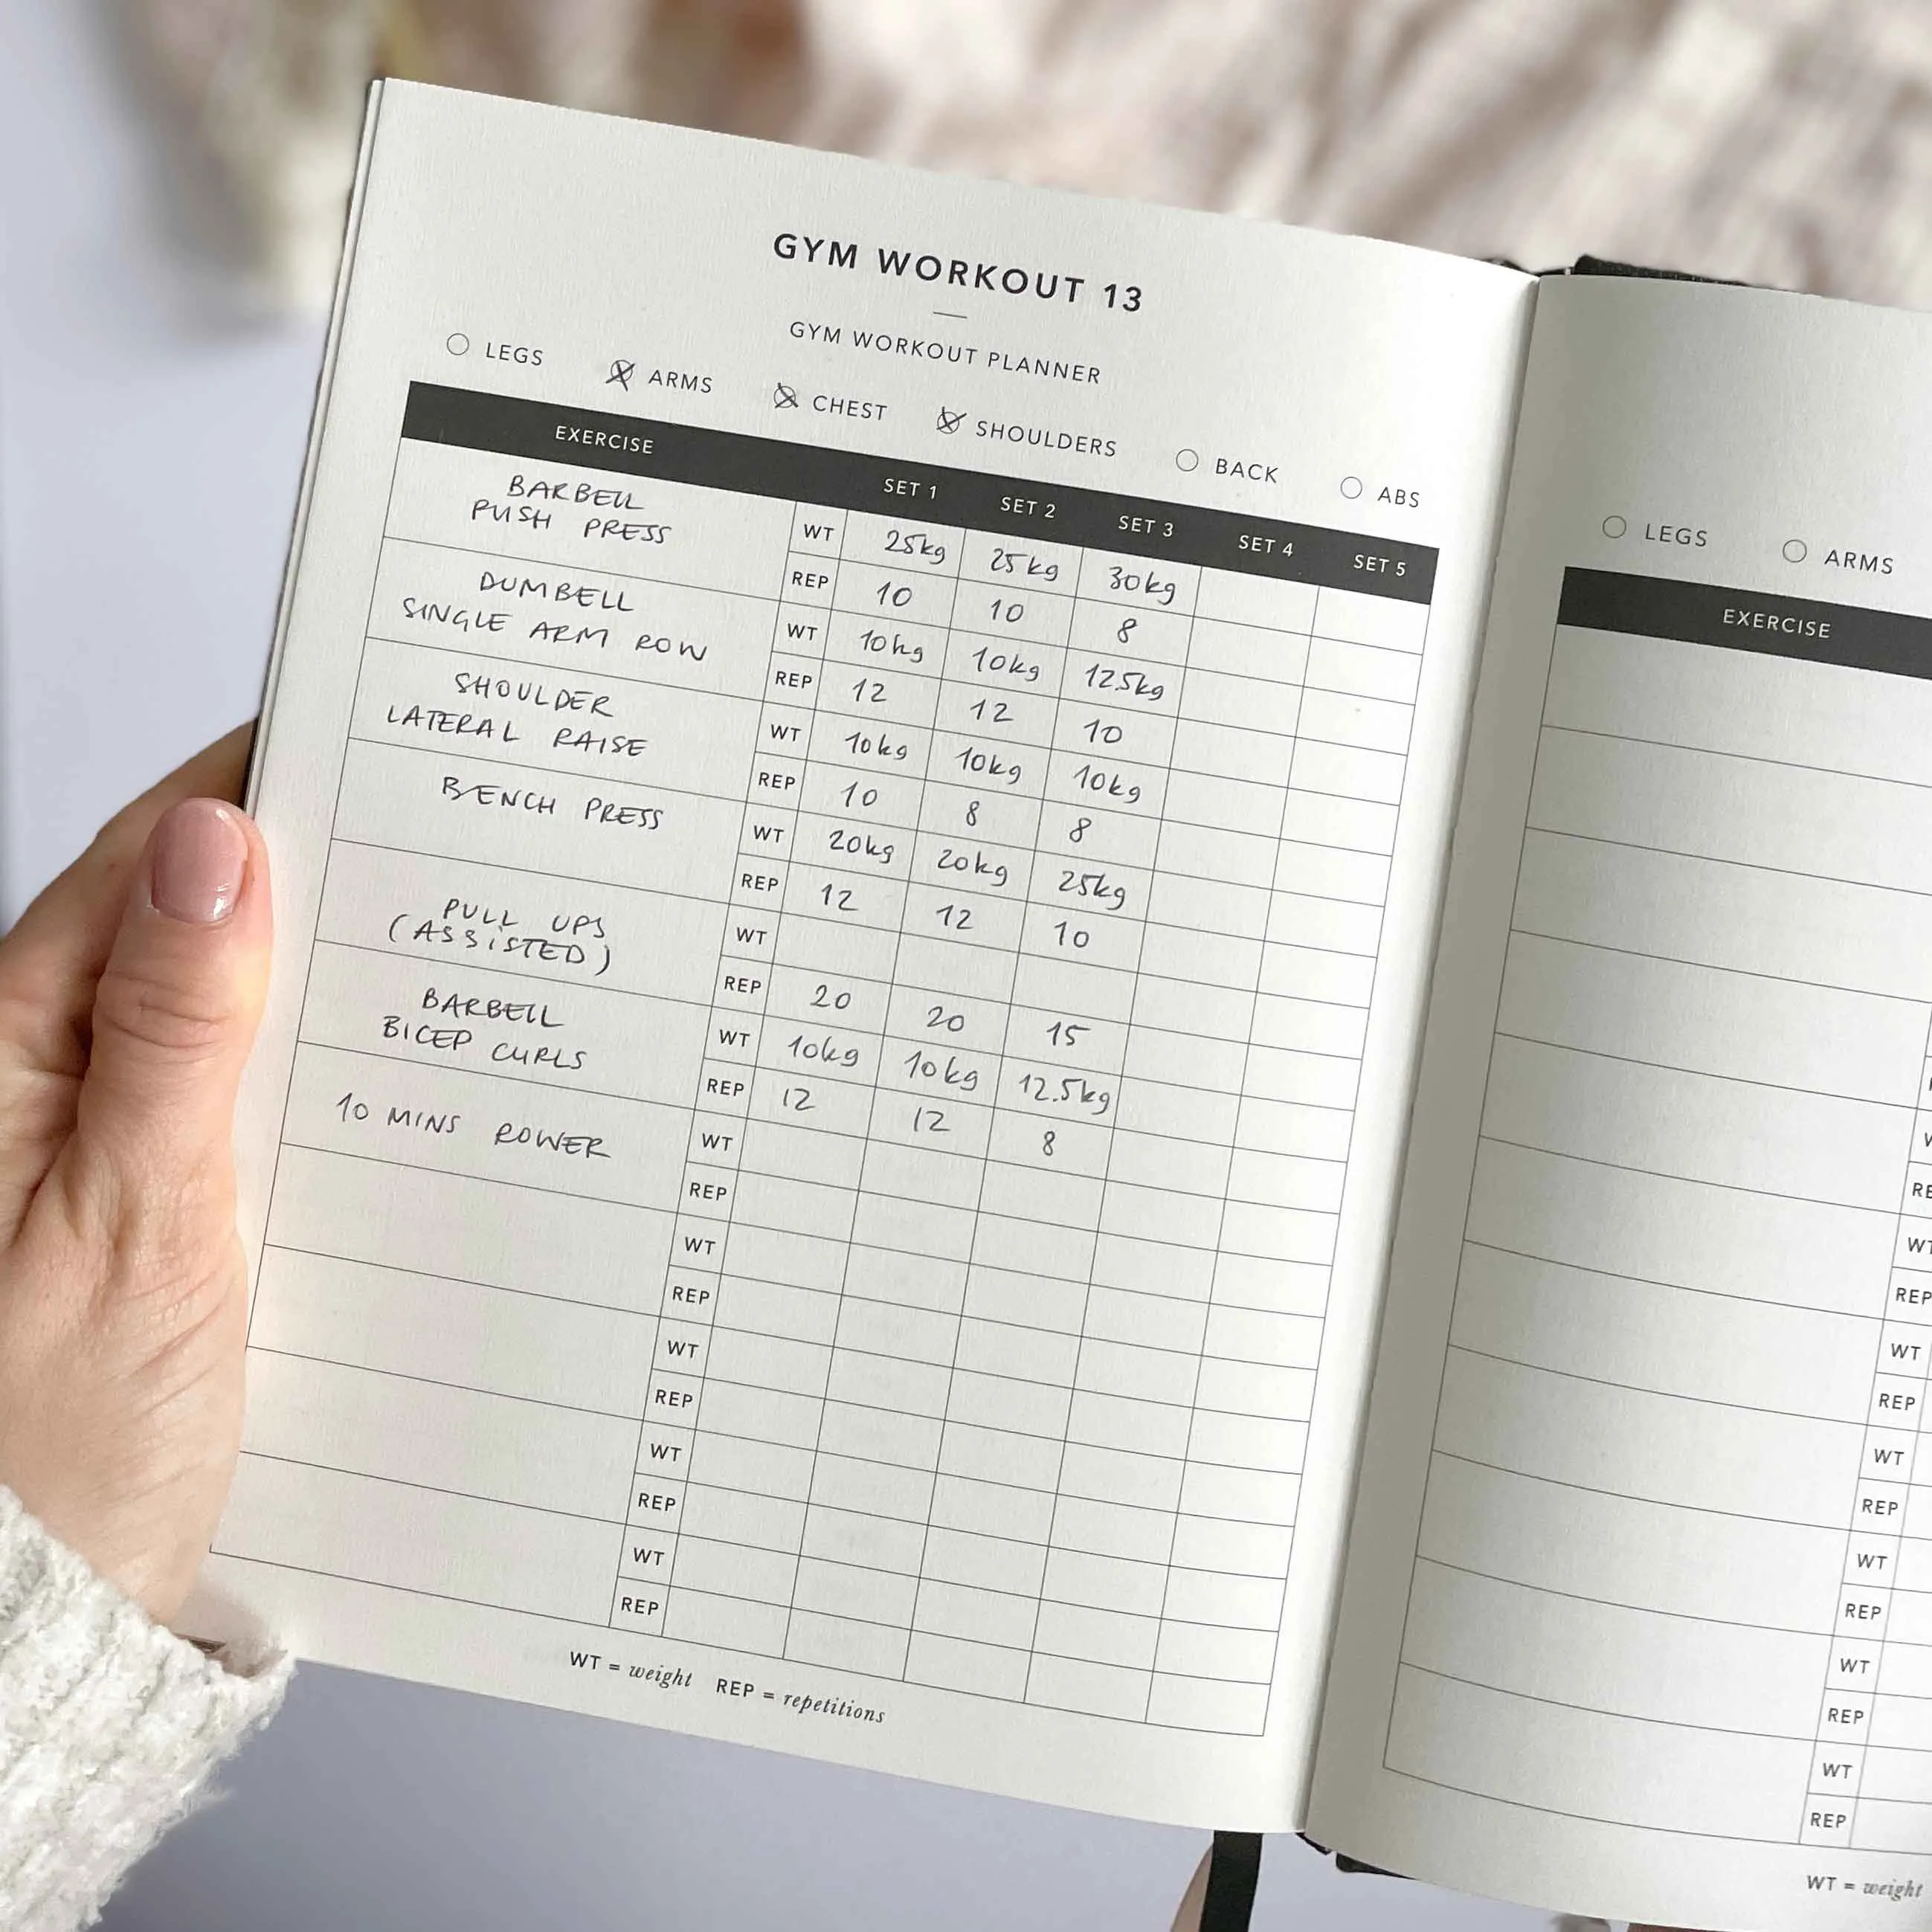 GYM WORKOUT 13
GYM WORKOUT PLANNER
LEGS ARMS CHEST SHOULDERS BACK ABS
EXERCISE SET 1 SET 2 SET 3 SET 4 SET 5
BARBELL
PUSH PRESS
WT 25kg 25kg 30kg
REP 10 10 8
DUMBELL
SINGLE ARM ROW
WT 10kg 10kg 12.5kg
REP 12 12 10
SHOULDER
LATERAL RAISE
WT 10kg 10kg 10kg
REP 10 8 8
BENCH PRESS
WT 20kg 20kg 25kg
REP 12 12 10
PULL UPS
(ASSISTED)
WT
REP 20 20 15
BARBELL
BICEP CURLS
WT 10kg 10kg 12.5kg
REP 12 12 8
10 MINS ROWER
WT
REP
WT
REP
WT
REP
WT
REP
WT
REP
WT = weight REP = repetitions
LEGS ARMS
EXERCISE
WT
REP
WT
REP
WT
REP
WT
REP
WT
REP
WT
REP
WT = weight